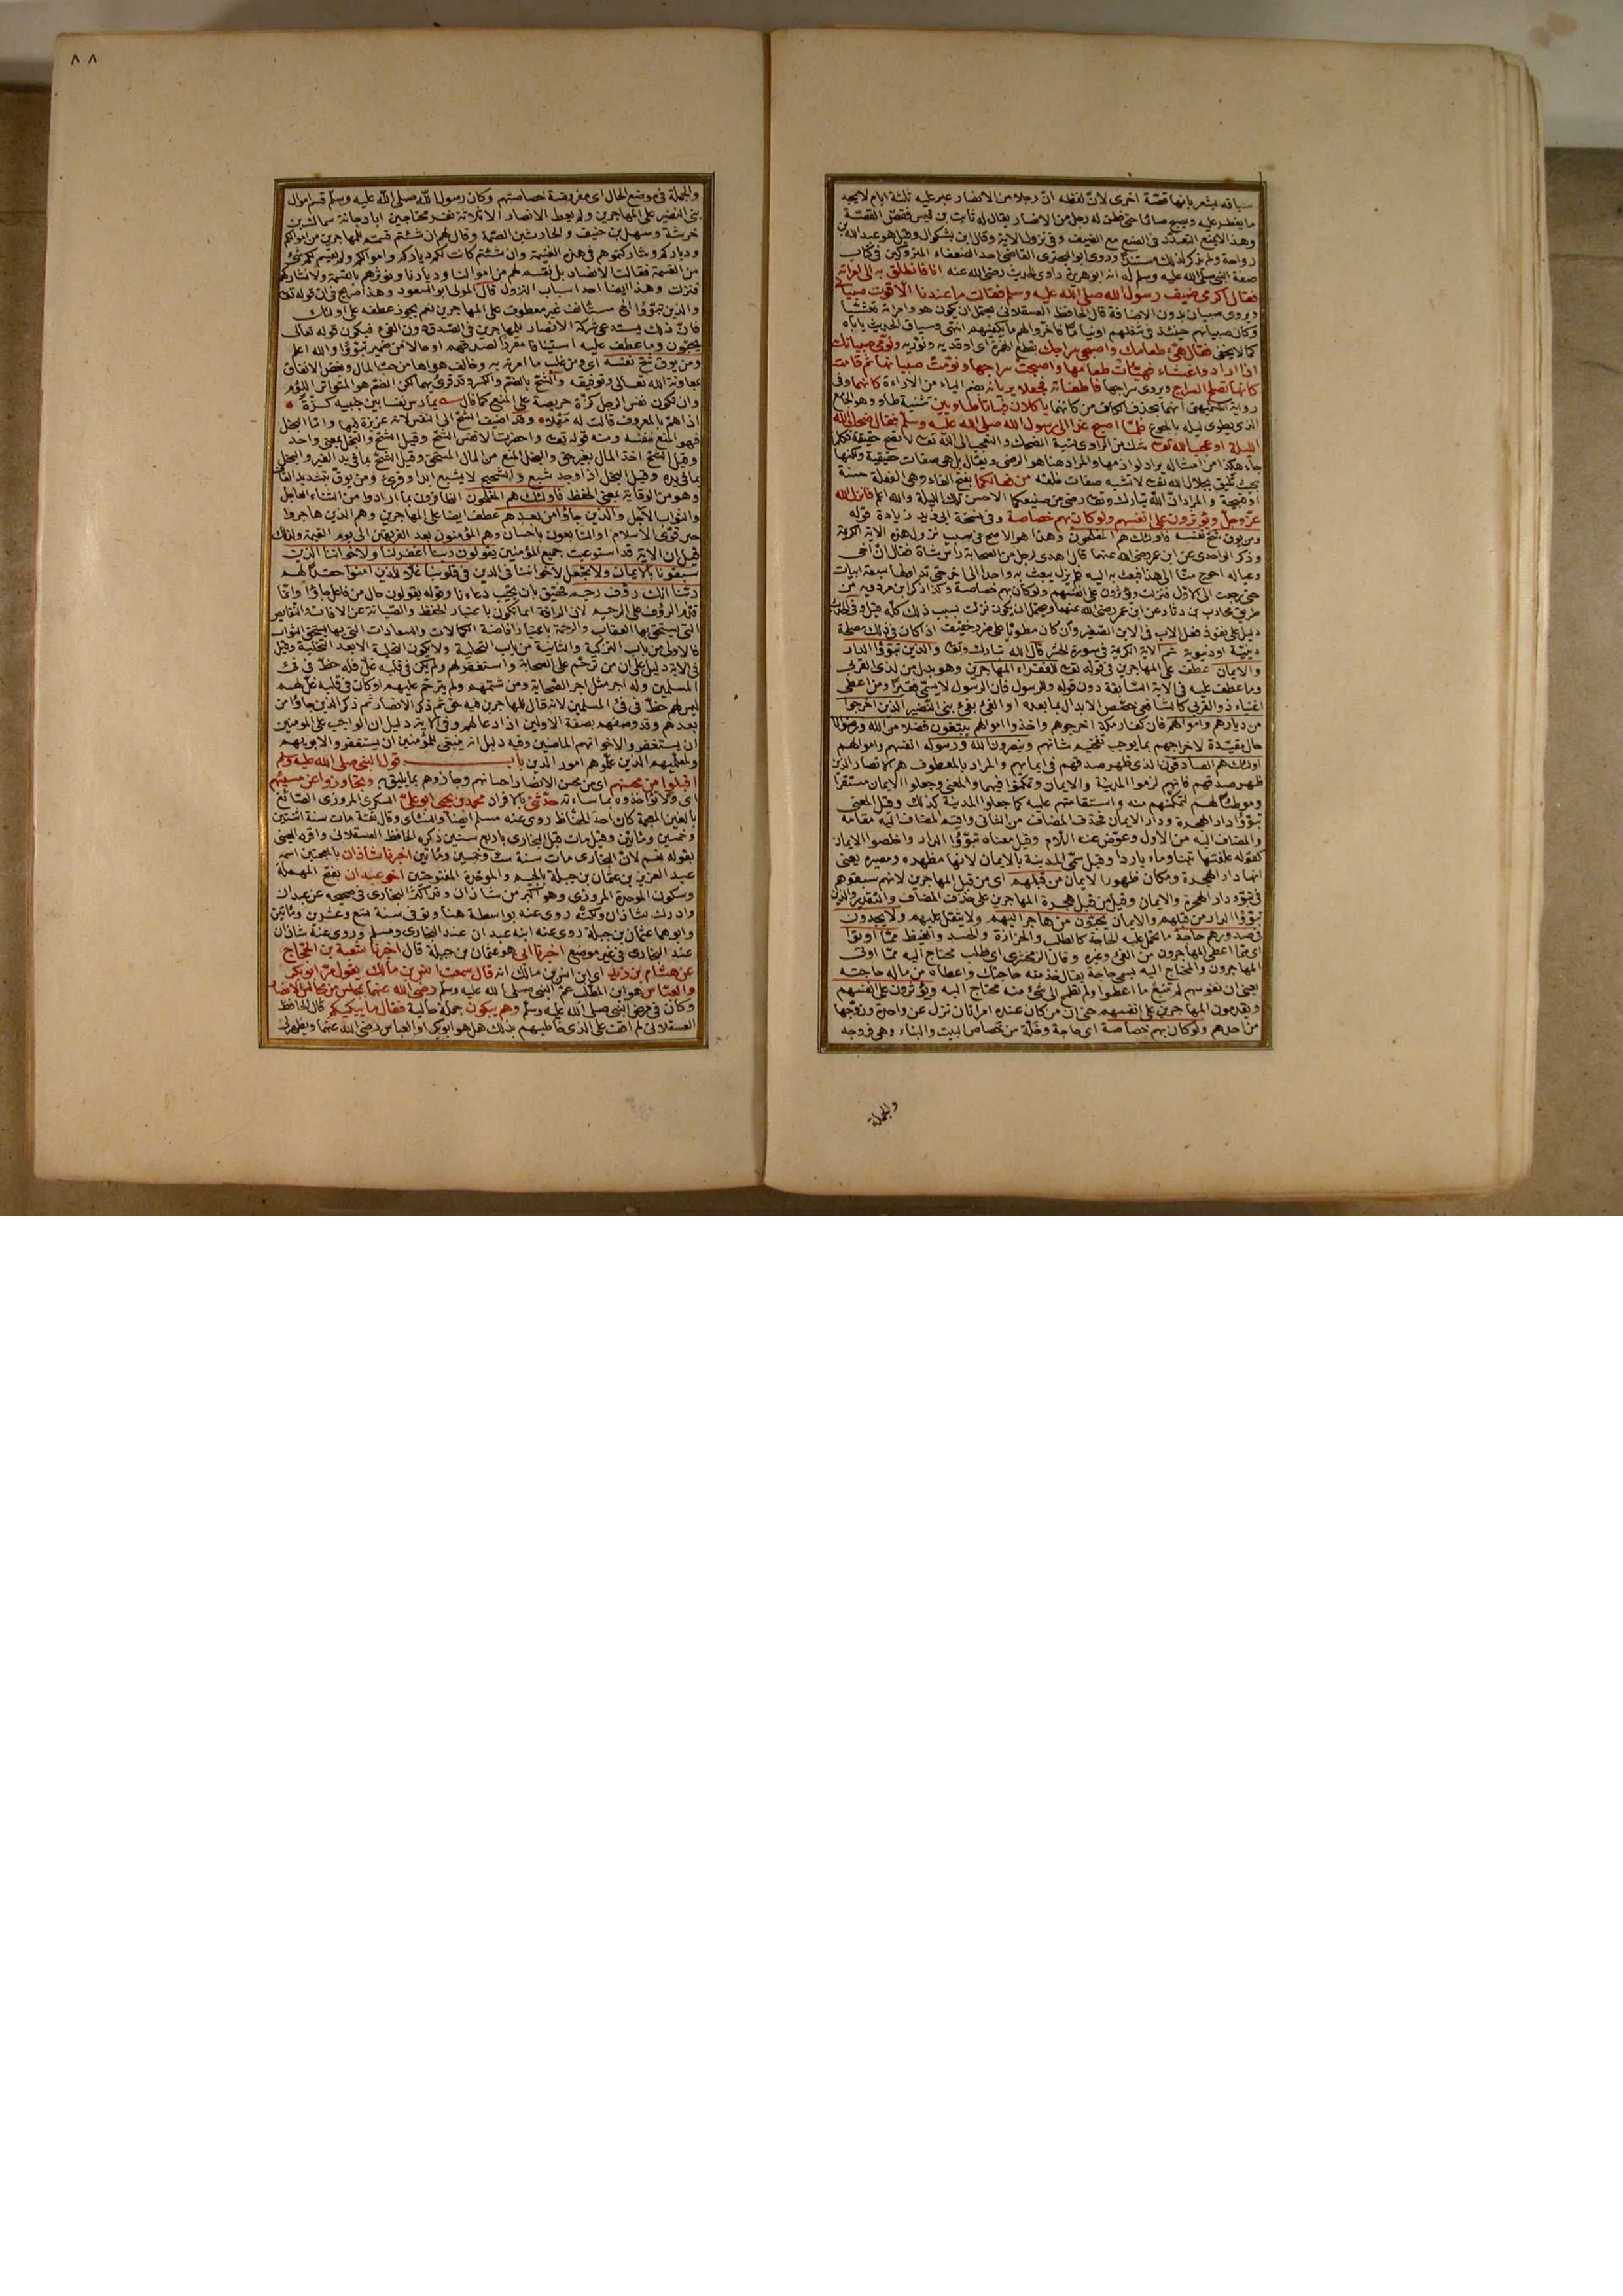 سياقه يشعر بانها قصة اخرى لان لفظه ان رجلا من الانصار عبر عليه ثلثة ايام لا يجد
ما يفطر عليه ويصبح صائما حتى فطن له رجل من الانصار يقال له ثابت بن قيس فقص القصة
وهذا لا يمنع التعدد في الصنع مع الضيف وفي نزول الاية وقال ابن بشكوال وقيل هو عبد الله بن
رواحة ولم يذكر لذلك مستندا وروى ابو البحترى القاضى احد الضعفاء المتروكين في كتاب
صفة النبي صلى الله عليه وسلم له انه ابو هريرة راوى الحديث رضى الله عنه انا فانطلق به الى امراته
فقال اكرمى ضيف رسول الله صلى الله عليه وسلم فقالت ما عندنا الا قوت صبيانى
ويروى صبيان بدون الاضافة قال الحافظ العسقلانى يحتمل ان يكون هو وامراته تعشيا
وكان صبيانهم حينئذ في شغلهم او نياما فاخروا لهم ما يكفيهم انتهى وسياق الحديث ياباه
كما لا يخفى فقال هيئى طعامك واصبحى سراجك بقطع الهمزة اى اوقديه ونوريه ونومى صبيانك
اذا ارادوا عشاء فهيئات طعامها واصبحت سراجها ونومت صبيانها ثم قامت
كانها تصلح السراج ويروى سراجها فاطفاته فجعلا يريانه بضم الياء من الاراءة كانهما وفي
رواية الكشميهنى انهما بحذف الكاف من كانهما ياكلان فباتا طاويين تثنية طاو وهو الجايع
الذى يطوى ليله بالجوع فلما اصبح غدا الى رسول الله صلى الله عليه وسلم فقال ضحك الله
الليلة او عجب الله تعالى شك من الراوى نسبة الضحك والتعجب الى الله تعالى لا تصح حقيقة فكل ما
جاء هكذا من امثاله يراد لوازمها والمراد هنا هو الرضى ويقال بل هى صفات حقيقية ولكنها
بحيث تليق بجلال الله تعالى لا تشبه صفات خلقه من فعالكما بفتح الفاء وهى الفعلة حسنة
او قبيحة والمراد ان الله تبارك وتعالى رضى من صنيعكما الاحسن تلك الليلة والله اعلم فانزل الله
عز وجل ويؤثرون على انفسهم ولو كان بهم خصاصة وفي نسخة ابى ذر زيادة قوله
ومن يوق شح نفسه فاولئك هم المفلحون وهذا هو الاصح في سبب نزول هذه الاية الكريمة
وذكر الواحدى عن ابن عمر رضى الله عنهما قال اهدى لرجل من الصحابة راس شاة فقال ان اخى
وعياله احوج منا الى هذا فبعث به اليه فلم يزل يبعث به واحد الى اخر حتى تداولها سبعة ابيات
حتى رجعت الى الاول فنزلت ويؤثرون على انفسهم ولو كان بهم خصاصة وكذا ذكر ابن مردويه من
طريق محارب بن دثار عن ابن عمر رضى الله عنهما ويحتمل ان يكون نزلت بسبب ذلك كله قيل وفي الحديث
دليل على نفوذ فعل الاب في الابن الصغير وان كان مطويا على ضرر خفيف اذا كان في ذلك مصلحة
دينية او دنيوية ثم الاية الكريمة في سورة الحشر قال الله تبارك وتعالى والذين تبوؤا الدار
والايمان عطف على المهاجرين في قوله تعالى للفقراء المهاجرين وهو بدل من لذى القربى
وما عطف عليه في الاية السابقة دون قوله وللرسول فان الرسول لا يسمى فقيرا ومن اعطى
اغنياء ذوى القربى كالشافعى خصص الابدال بما بعده او الفئ بفئ بنى النضير الذين اخرجوا
من ديارهم واموالهم فان كفار مكة اخرجوهم واخذوا اموالهم يبتغون فضلا من الله ورضوانا
حال مقيدة لاخراجهم بما يوجب تفخيم شانهم وينصرون الله ورسوله انفسهم واموالهم
اولئك هم الصادقون الذى ظهر صدقهم في ايمانهم والمراد بالمعطوف هم الانصار الذين
ظهر صدقهم فانهم لزموا المدينة والايمان وتمكنوا فيهما والمعنى وجعلوا الايمان مستقرا
وموطنا لهم لتمكنهم منه واستقامتهم عليه كما جعلوا المدينة كذلك وقيل المعنى
تبوؤا دار الهجرة ودار الايمان فحذف المضاف من الثانى واقيم المضاف اليه مقامه
والمضاف اليه من الاول وعوض عنه اللام وقيل معناه تبوؤا الدار واخلصوا الايمان
كقوله علفتها تبنا وماء باردا وقيل سمى المدينة بالايمان لانها مظهره ومصيره يعنى
انها دار الهجرة ومكان ظهور الايمان من قبلهم اى من قبل المهاجرين لانهم سبقوهم
في تبوء دار الهجرة والايمان وقيل من قبل هجرة المهاجرين على حذف المضاف والتقدير والذين
تبوؤا الدار من قبلهم والايمان يحبون من هاجر اليهم ولا يثقل عليهم ولا يجدون
في صدورهم حاجة ما تحمل عليه الحاجة كالطلب والحزازة والحسد والغيظ مما اوتوا
اى مما اعطى المهاجرون من الفئ وغيره وقال الزمخشرى اى طلب محتاج اليه مما اوتى
المهاجرون والمحتاج اليه يسمى حاجة يقال خذ منه حاجتك واعطاه من ماله حاجته
يعنى ان نفوسهم لم تتبع ما اعطوا ولم تطمح الى شئ منه محتاج اليه ويؤثرون على انفسهم
ويقدمون المهاجرين على انفسهم حتى ان من كان عنده امراتان نزل عن واحدة وزوجها
من احدهم ولو كان بهم خصاصة اى حاجة وخلة من خصاص البيت والبناء وهى فروجه
والجملة
٨٨
والجملة في موضع الحال اى مفروضة خصاصتهم وكان رسول الله صلى الله عليه وسلم قسم اموال
بنى النضير على المهاجرين ولم يعط الانصار الا ثلاثة نفر محتاجين ابا دجانة سماك بن
خرشة وسهل بن حنيف والحارث بن الصمة وقال لهم ان شئتم قسمتم للمهاجرين من اموالكم
ودياركم وشاركتموهم في هذه الغنيمة وان شئتم كانت لكم دياركم واموالكم ولم يقسم لكم شئ
من الغنيمة فقالت الانصار بل نقسم لهم من اموالنا وديارنا ونؤثرهم بالغنيمة ولا نشاركهم
فنزلت وهذا ايضا احد اسباب النزول قال المولى ابو السعود وهذا صريح في ان قوله تعالى
والذين تبوؤا الخ مستانف غير معطوف على المهاجرين نعم يجوز عطفه على اولئك
فان ذلك يستدعى شركة الانصار للمهاجرين في الصدق دون الفئ فيكون قوله تعالى
يحبون وما عطف عليه استينافا مقررا لصدقهم او حالا من ضمير تبوؤا والله اعلم
ومن يوق شح نفسه اى ومن غلب ما امرته به وخالف هواها من حب المال وبغض الانفاق
بمعاونة الله تعالى وتوفيقه والشح بالضم والكسر وقد قرئ بهما لكن الضم هو المتواتر اللؤم
وان تكون نفس الرجل كزة حريصة على المنع كما قال يمارس نفسا بين جنبيه كزة
اذا هم بالمعروف قالت له مهلا وقد اضيف الشح الى النفس لانه غريزة فيها واما البخل
فهو المنع نفسه ومنه قوله تعالى واحضرت الانفس الشح وقيل الشح والبخل بمعنى واحد
وقيل الشح اخذ المال بغير حق والبخل المنع من المال المستحق وقيل الشح بما في يد الغير والبخل
بما في يده وقيل البخيل اذا وجد شبع والشحيح لا يشبع ابدا وقرئ ومن يوق بتشديد القاف
وهو من الوقاية بمعنى الحفظ فاولئك هم المفلحون الفائزون بما ارادوا من الثناء العاجل
والثواب الاجل والذين جاؤا من بعدهم عطف ايضا على المهاجرين وهم الذين هاجروا
حين قوى الاسلام او التابعون باحسان وهم المؤمنون بعد الفريقين الى يوم القيمة ولذلك
قيل ان الاية قد استوعبت جميع المؤمنين يقولون ربنا اغفر لنا ولاخواننا الذين
سبقونا بالايمان ولا تجعل لاخواننا في الدين في قلوبنا غلا للذين امنوا حقدا لهم
ربنا انك رؤف رحيم فحقيق بان تجيب دعاءنا وقوله يقولون حال من فاعل جاؤا وانما
قدم الرؤف على الرحيم لان الرافة انما تكون باعتبار الحفظ والصيانة عن الافات والنقايص
التى يستحق بها العقاب والرحمة باعتبار افاضة الكمالات والسعادات التى بها يستحق الثواب
فالاولى من باب التزكية والثانية من باب التحلية ولا يكون التحلية الا بعد التخلية وقيل
في الاية دليل على ان من ترحم على الصحابة واستغفر لهم ولم يكن في قلبه غل فله حظ في فئ
المسلمين وله اجر مثل اجر الصحابة ومن شتمهم ولم يترحم عليهم او كان في قلبه غل لهم
ليس لهم حظ في فئ المسلمين لانه قال للمهاجرين فيه حق ثم ذكر الانصار ثم ذكر الذين جاؤا من
بعدهم وقد وصفهم بصفة الاولين اذا دعا لهم وفي الاية دليل ان الواجب على المؤمنين
ان يستغفروا لاخوانهم الماضين وفيه دليل انه ينبغى للمؤمنين ان يستغفروا لابويهم
ولمعلميهم الذين علموهم امور الدين باب قول النبي صلى الله عليه وسلم
اقبلوا من محسنهم اى من محسن الانصار احسانهم وجازوهم بما يليق به وتجاوزوا عن مسيئهم
اى ولا تؤاخذوه بما ساءته حدثنى بالافراد محمد بن يحيى ابو على السكرى المروزى الصائغ
بالغين المعجمة كان احد الحفاظ روى عنه مسلم ايضا والنسائى وقال ثقة مات سنة اثنتين
وخمسين ومائتين وقيل مات قبل البخارى باربع سنين ذكره الحافظ العسقلانى واقره العينى
بقوله نعم لان البخارى مات سنة ست وخمسين ومائتين اخبرنا شاذان بالمعجمتين اسمه
عبد العزيز بن عثمان بن جبلة بالجيم والموحدة المفتوحتين اخى عبدان بفتح المهملة
وسكون الموحدة المروزى وهو اكبر من شاذان وقد اكثر البخارى في صحيحه عن عبدان
وادرك شاذان ولكنه روى عنه بواسطة هنا وتوفى سنة تسع وعشرين ومائتين
وابوهما عثمان بن جبلة روى عنه ابنه عبدان عند البخارى ومسلم وروى عنه شاذان
عند البخارى في غير موضع اخبرنا ابى هو عثمان بن جبلة قال اخبرنا شعبة بن الحجاج
عن هشام بن زيد اى ابن انس بن مالك انه قال سمعت انس بن مالك يقول مر ابو بكر
والعباس هو ابن المطلب عم النبي صلى الله عليه وسلم رضى الله عنهما بمجلس من مجالس الانصار
وكان في مرض النبي صلى الله عليه وسلم وهم يبكون جملة حالية فقال ما يبكيكم قال الحافظ
العسقلانى لم اقف على الذى خاطبهم بذلك هل هو ابو بكر او العباس رضى الله عنهما ويظهر لى